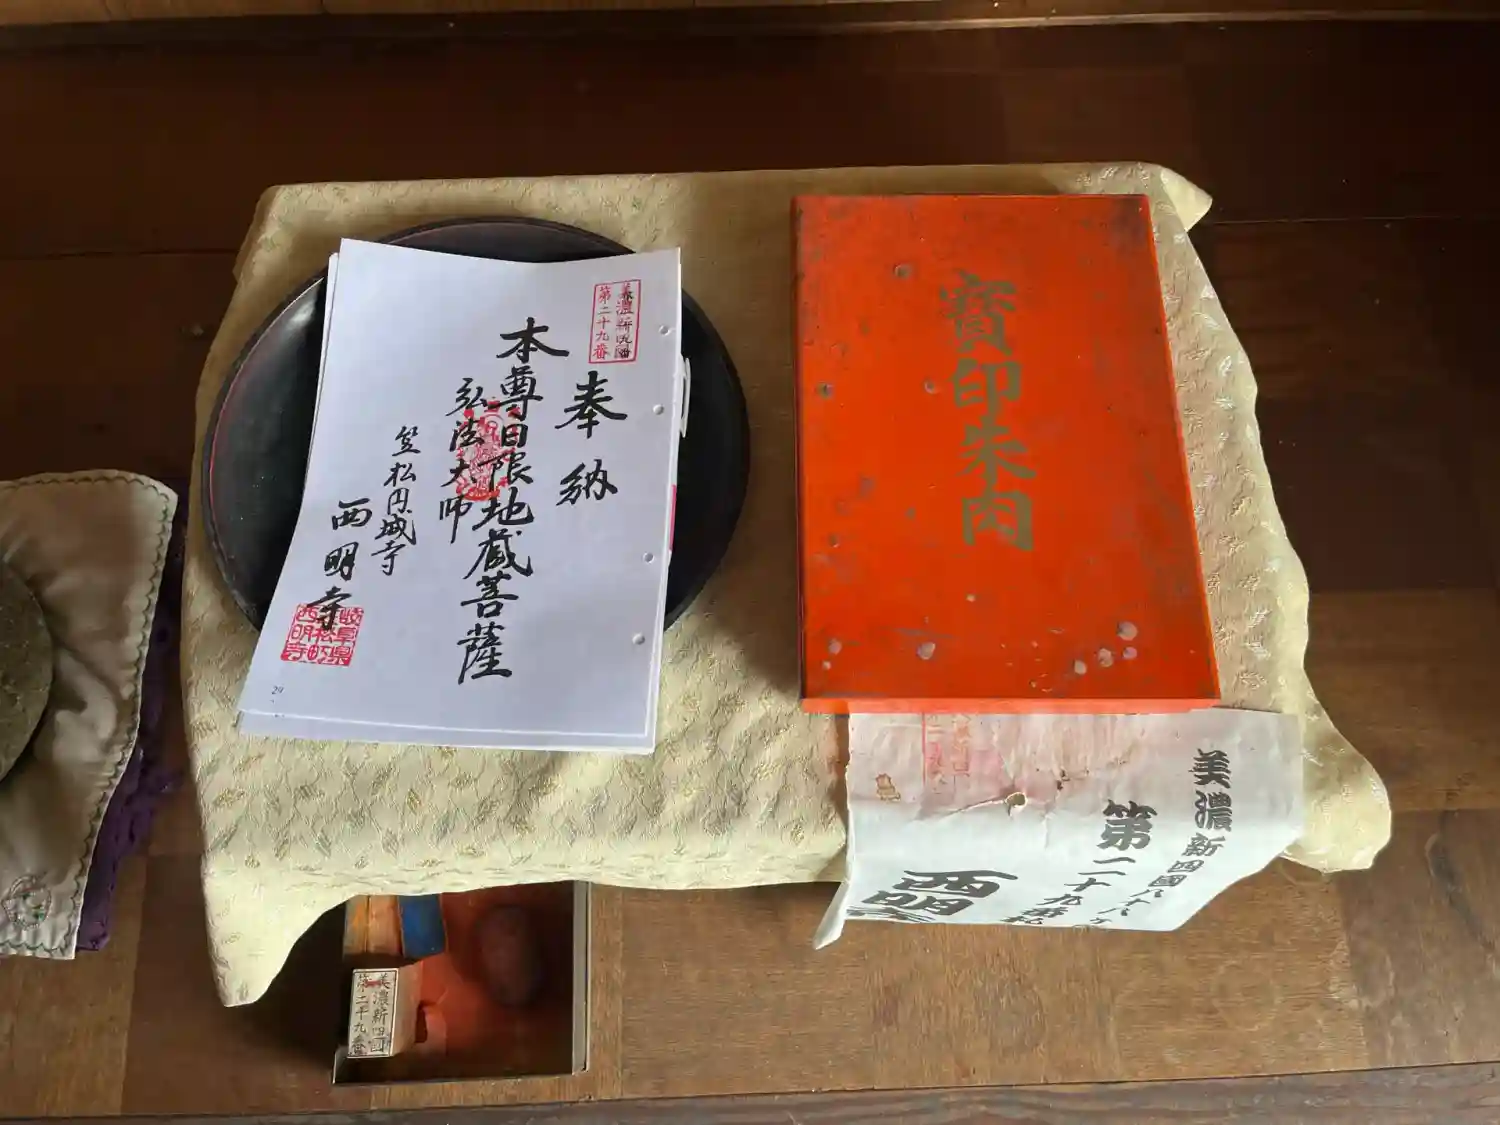 美濃新四國
第二十九番
奉納
本尊日限地蔵菩薩
弘法大師
笠松円城寺
西明寺
岐阜県
笠松町
西明寺
29
寶印朱肉
美濃新四國八十八ヶ
第二十九番
西明
美濃新四国
第二十九番